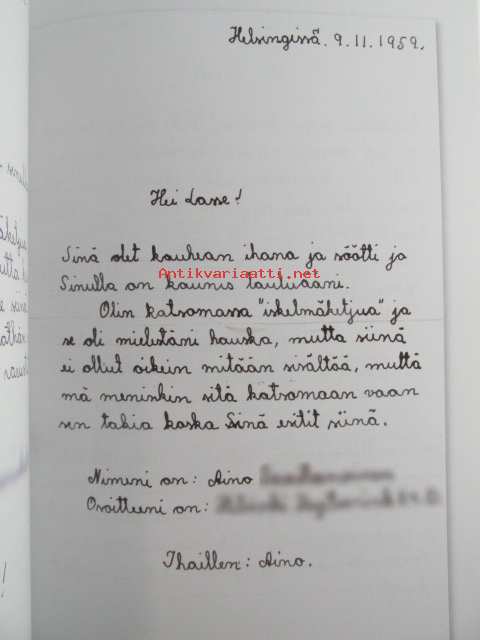 Helsingissä. 9.11.1959.
Hei Lasse!
Sinä olet kauhean ihana ja söötti ja
Antikvariaatti.net
Sinulla on kaunis lauluääni.
Olin katsomassa "iskelmäketjua" ja
se oli mielestäni hauska, mutta siinä
ei ollut oikein mitään sisältöä, mutta
mä meninkin sitä katsomaan vaan
sen takia koska Sinä esitit siinä.
Nimeni on: Aino
Osoitteeni on:
Ihaillen: Aino.